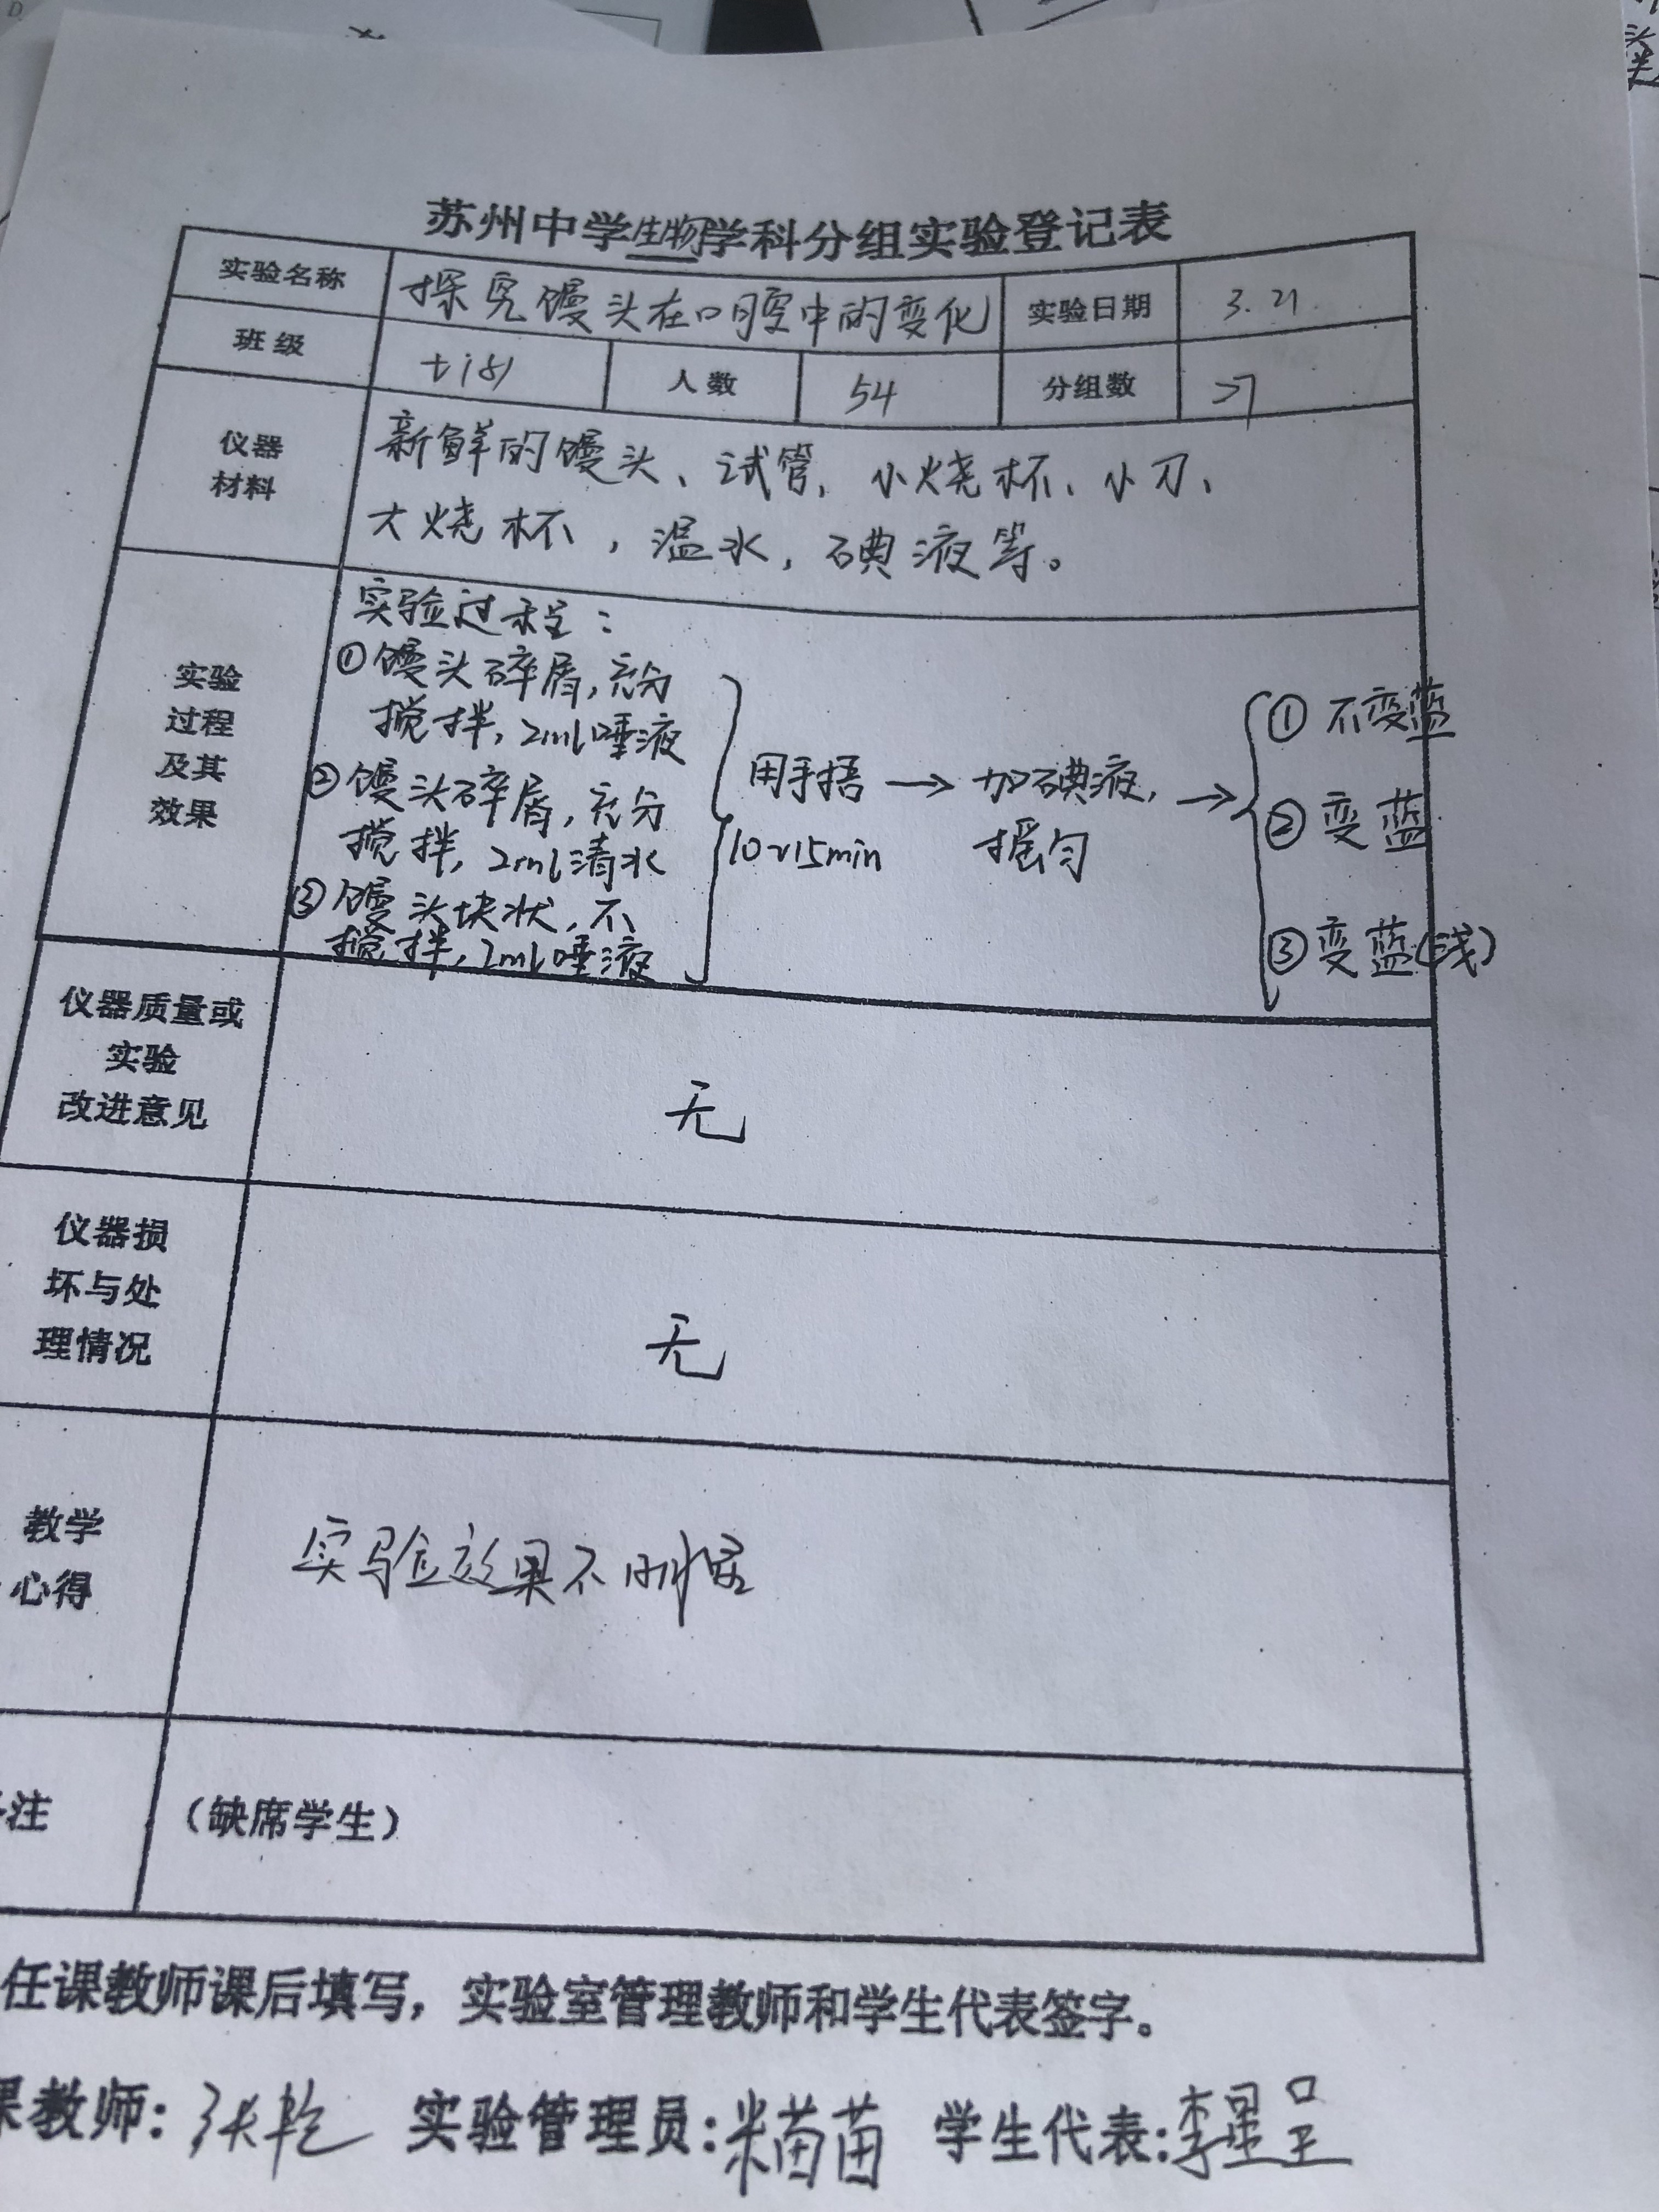 苏州中学生物学科分组实验登记表
实验名称 探究馒头在口腔中的变化 实验日期 3.21
班级 七(8) 人数 54 分组数 27
仪器材料 新鲜的馒头、试管、小烧杯、小刀、
大烧杯，温水，碘液等。
实验过程及其效果
实验过程：
①馒头碎屑，充分
搅拌，2ml唾液
②馒头碎屑，充分
搅拌，2ml清水
③馒头块状，不
搅拌，2ml唾液
用手捂 → 加碘液， →
10~15min 摇匀
①不变蓝
②变蓝
③变蓝(浅)
仪器质量或
实验
改进意见
无
仪器损
坏与处
理情况
无
教学
心得
实验效果不明显
注 （缺席学生）
任课教师课后填写，实验室管理教师和学生代表签字。
课教师：张乾 实验管理员：米苗苗 学生代表：李星呈